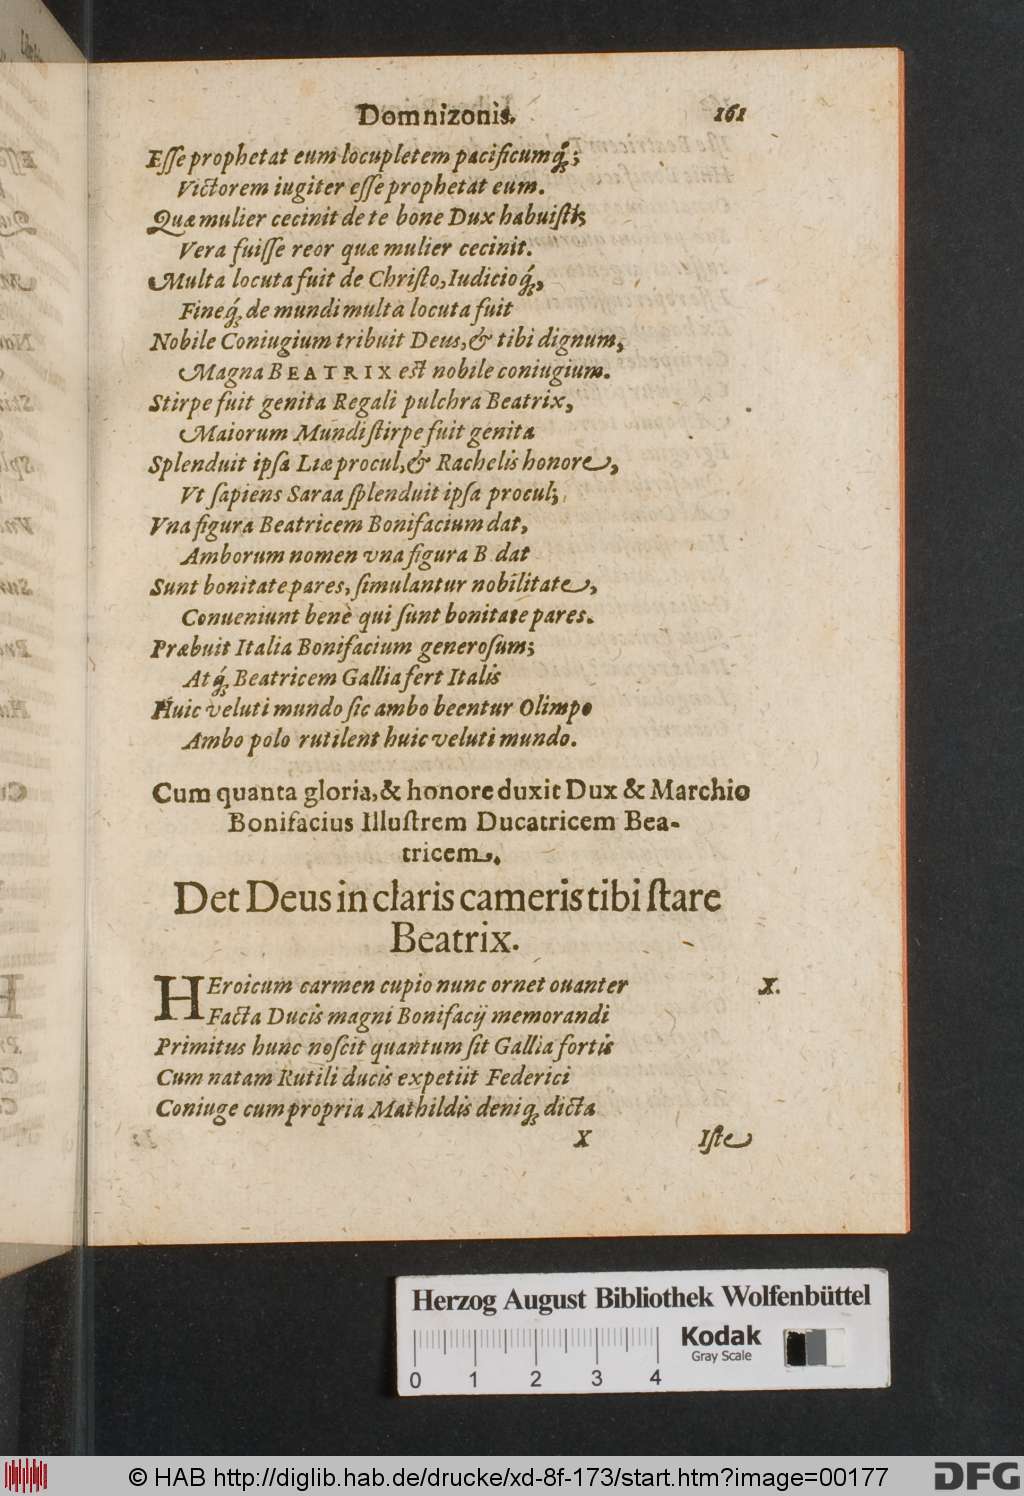 Domnizonis. 161
Esse prophetat eum locupletem pacificumq́;
Victorem iugiter esse prophetat eum.
Quæ mulier cecinit de te bone Dux habuisti;
Vera fuisse reor quæ mulier cecinit.
Multa locuta fuit de Christo, Iudicioq́;,
Fineq́; de mundi multa locuta fuit
Nobile Coniugium tribuit Deus, & tibi dignum,
Magna BEATRIX est nobile coniugium.
Stirpe fuit genita Regali pulchra Beatrix,
Maiorum Mundi stirpe fuit genita
Splenduit ipsa Liæ procul, & Rachelis honore,
Vt sapiens Saraa splenduit ipsa procul;
Vna figura Beatricem Bonifacium dat,
Amborum nomen vna figura B dat
Sunt bonitate pares, simulantur nobilitate,
Conueniunt benè qui sunt bonitate pares.
Præbuit Italia Bonifacium generosum;
Atq́; Beatricem Gallia fert Italis
Huic veluti mundo sic ambo beentur Olimpo
Ambo polo rutilent huic veluti mundo.
Cum quanta gloria, & honore duxit Dux & Marchio
Bonifacius Illustrem Ducatricem Bea-
tricem.
Det Deus in claris cameris tibi stare
Beatrix.
HEroicum carmen cupio nunc ornet ouanter X.
Facta Ducis magni Bonifacij memorandi
Primitus hunc noscit quantum sit Gallia fortis
Cum natam Rutili ducis expetiit Federici
Coniuge cum propria Mathildis deniq; dicta
X Iste
Herzog August Bibliothek Wolfenbüttel
Kodak
Gray Scale
0 1 2 3 4
© HAB http://diglib.hab.de/drucke/xd-8f-173/start.htm?image=00177
DFG